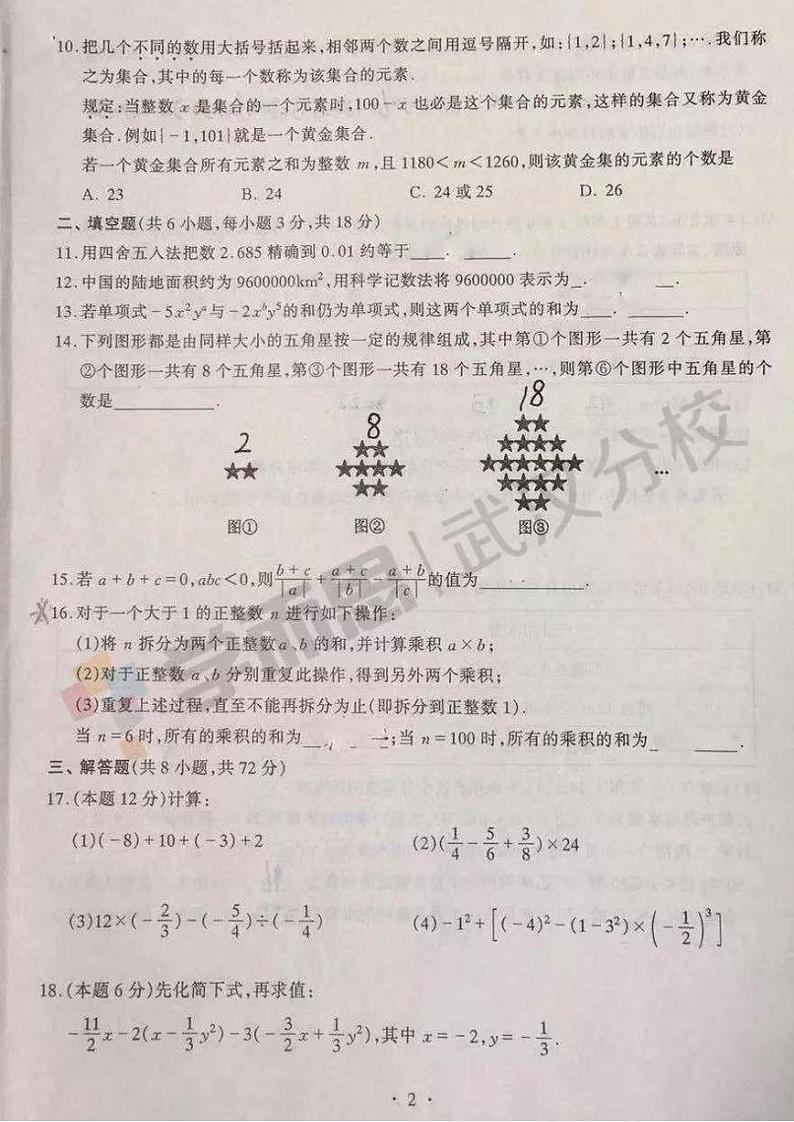 10.把几个不同的数用大括号括起来,相邻两个数之间用逗号隔开,如:{1,2};{1,4,7};….我们称
之为集合,其中的每一个数称为该集合的元素.
规定:当整数 x 是集合的一个元素时,100-x 也必是这个集合的元素,这样的集合又称为黄金
集合.例如{-1,101}就是一个黄金集合.
若一个黄金集合所有元素之和为整数 m,且 1180<m<1260,则该黄金集的元素的个数是
A. 23 B. 24 C. 24 或 25 D. 26
二、填空题(共 6 小题,每小题 3 分,共 18 分)
11.用四舍五入法把数 2.685 精确到 0.01 约等于____.
12.中国的陆地面积约为 9600000km²,用科学记数法将 9600000 表示为____.
13.若单项式-5x²yᵃ与-2xᵇy⁵的和仍为单项式,则这两个单项式的和为____.
14.下列图形都是由同样大小的五角星按一定的规律组成,其中第①个图形一共有 2 个五角星,第
②个图形一共有 8 个五角星,第③个图形一共有 18 个五角星,…,则第⑥个图形中五角星的个
数是____.
2 8 18
…
图① 图② 图③
15.若 a+b+c=0,abc<0,则(b+c)/|a|+(a+c)/|b|-(a+b)/|c|的值为____.
16.对于一个大于 1 的正整数 n 进行如下操作:
(1)将 n 拆分为两个正整数 a、b 的和,并计算乘积 a×b;
(2)对于正整数 a、b 分别重复此操作,得到另外两个乘积;
(3)重复上述过程,直至不能再拆分为止(即拆分到正整数 1).
当 n=6 时,所有的乘积的和为____;当 n=100 时,所有的乘积的和为____.
三、解答题(共 8 小题,共 72 分)
17.(本题 12 分)计算:
(1)(-8)+10+(-3)+2 (2)(1/4-5/6+3/8)×24
(3)12×(-2/3)-(-5/4)÷(-1/4) (4)-1²+[(-4)²-(1-3²)×(-1/2)³]
18.(本题 6 分)先化简下式,再求值:
-11/2x-2(x-1/3y²)-3(-3/2x+1/3y²),其中 x=-2,y=-1/3.
· 2 ·
学而思|武汉分校